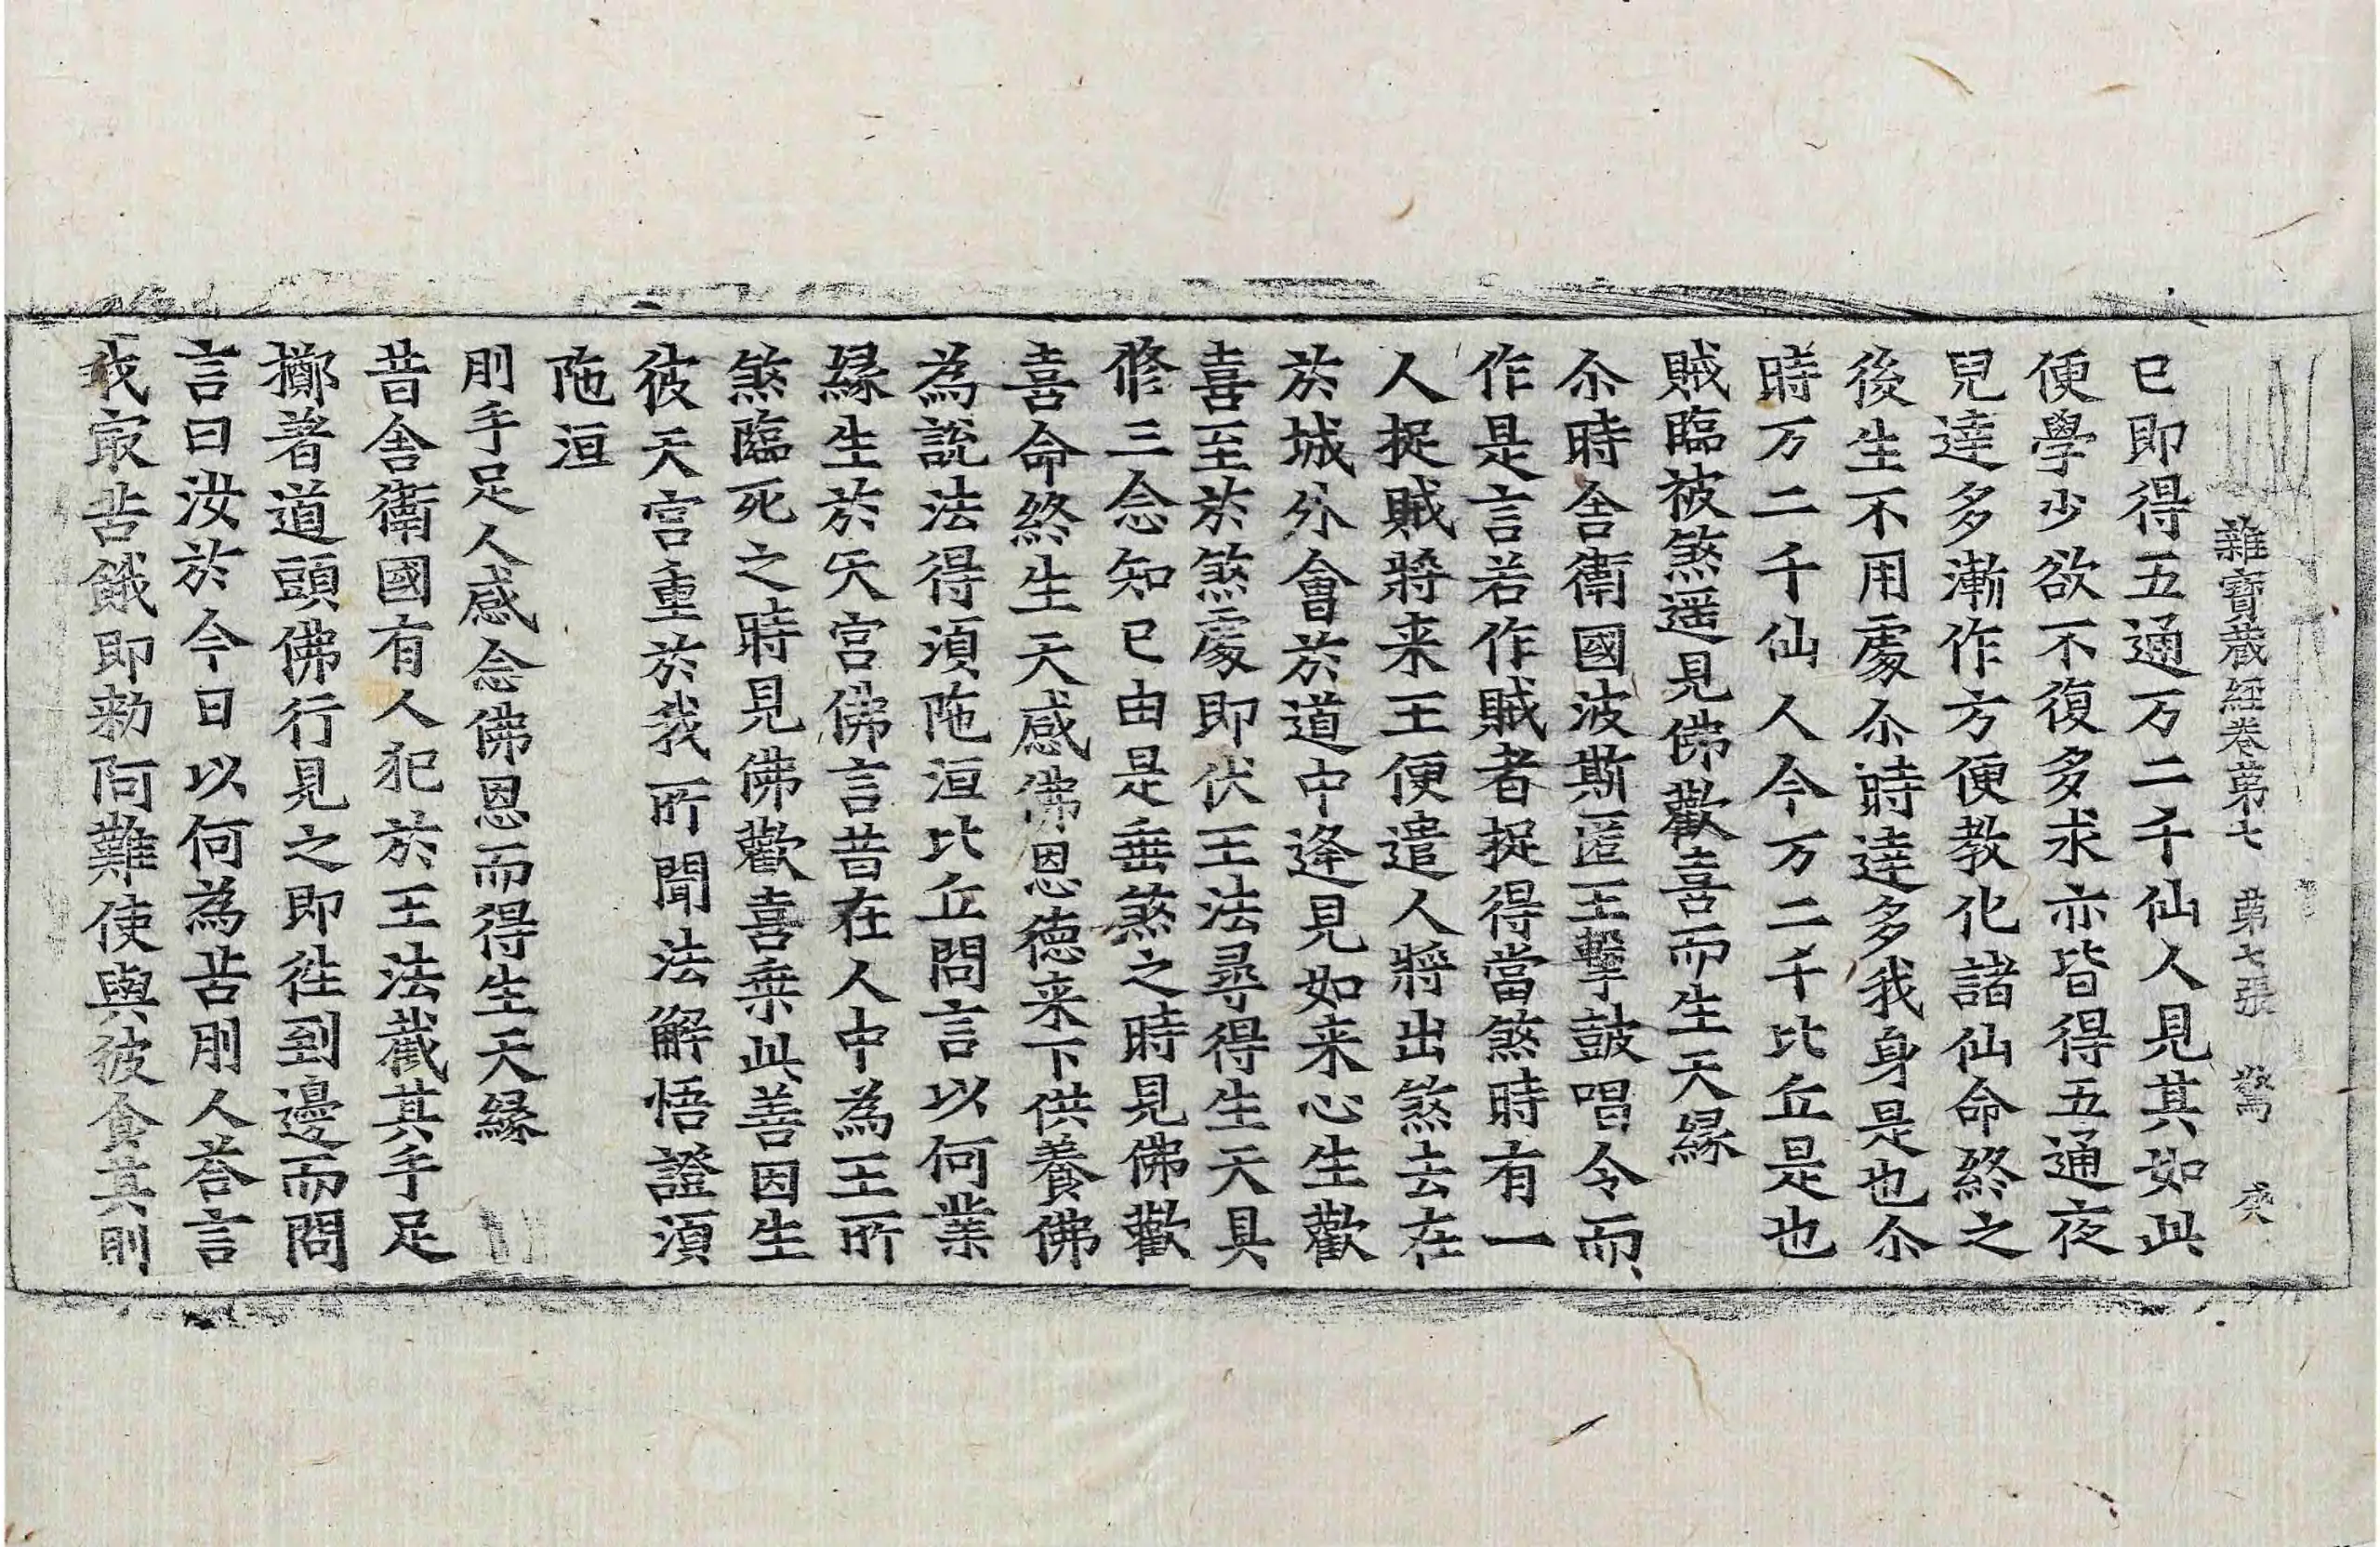 雜寶蔵経卷第七 第七張 驚 癸
已即得五通万二千仙人見其如此
便學少欲不復多求亦皆得五通夜
兒達多漸作方便教化諸仙命終之
後生不用處尒時達多我身是也尒
時万二千仙人今万二千比丘是也
賊臨被煞遥見佛歡喜而生天縁
尒時舍衛國波斯匿王擊鼓唱令而
作是言若作賊者捉得當煞時有一
人捉賊將来王便遣人將出煞去在
於城外會於道中逄見如来心生歡
喜至於煞處即伏王法尋得生天具
修三念知已由是垂煞之時見佛歡
喜命終生天感佛恩德来下供養佛
為說法得湏陁洹比丘問言以何業
縁生於天宫佛言昔在人中為王所
煞臨死之時見佛歡喜乗此善因生
彼天宫重於我所聞法解悟證湏
陁洹
刖手足人感念佛恩而得生天縁
昔舍衛國有人犯於王法截其手足
擲著道頭佛行見之即徃到邊而問
言曰汝於今日以何為苦刖人荅言
我㝡苦餓即勑阿難使與彼食其刖